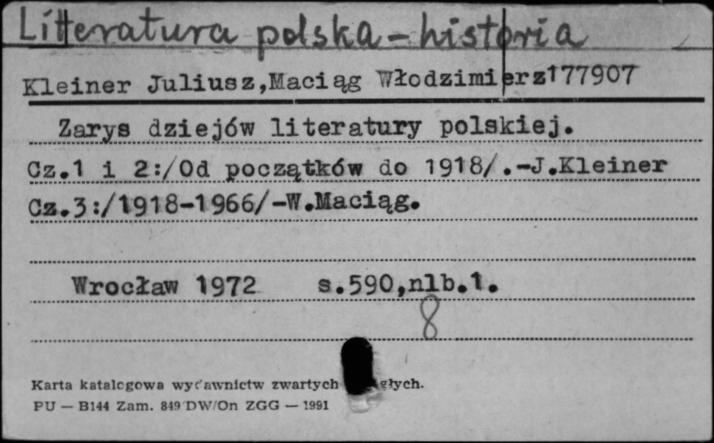 Litteratura polska - historia
Kleiner Juliusz,Maciąg Włodzimierz177907
Zarys dziejów literatury polskiej.
Cz.1 i 2:/Od początków do 1918/.-J.Kleiner
Cz.3:/1918-1966/-W.Maciąg.
Wrocław 1972 s.590,nlb.1.
8
Karta katalogowa wydawnictw zwartych
PU — B144 Zam. 849 DW/On ZGG — 1991